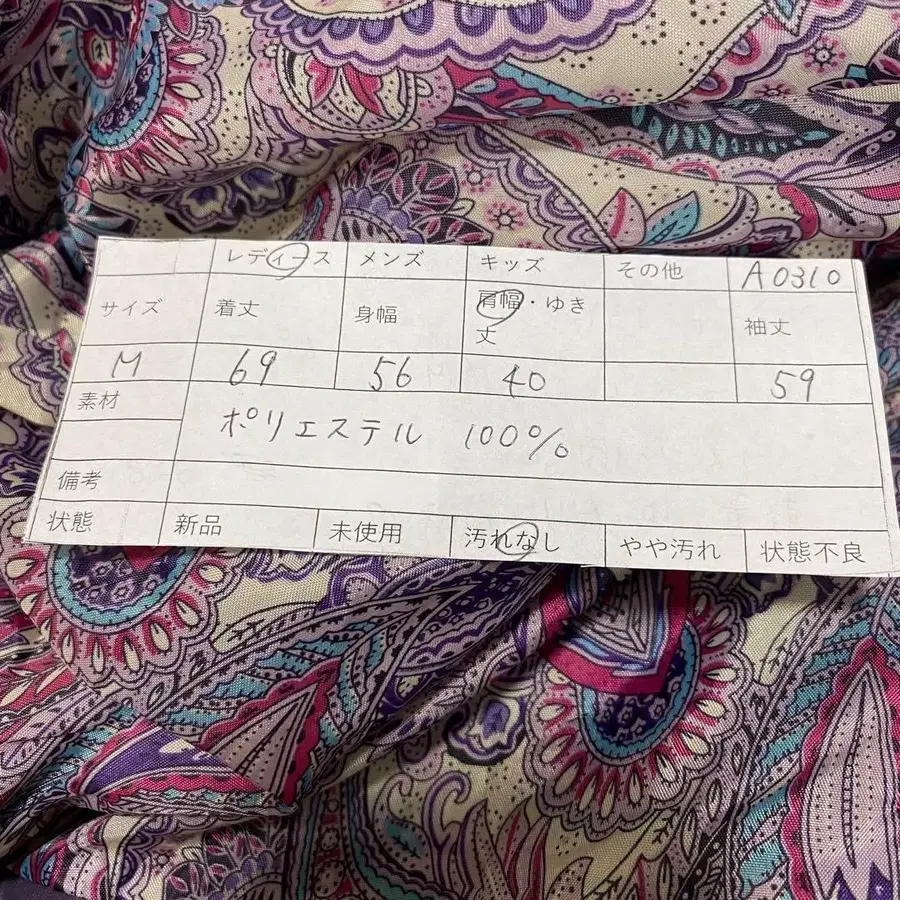 レディース メンズ キッズ その他 A0310
サイズ 着丈 身幅 肩幅・ゆき丈 袖丈
M 69 56 40 59
素材 ポリエステル 100%
備考
状態 新品 未使用 汚れなし やや汚れ 状態不良